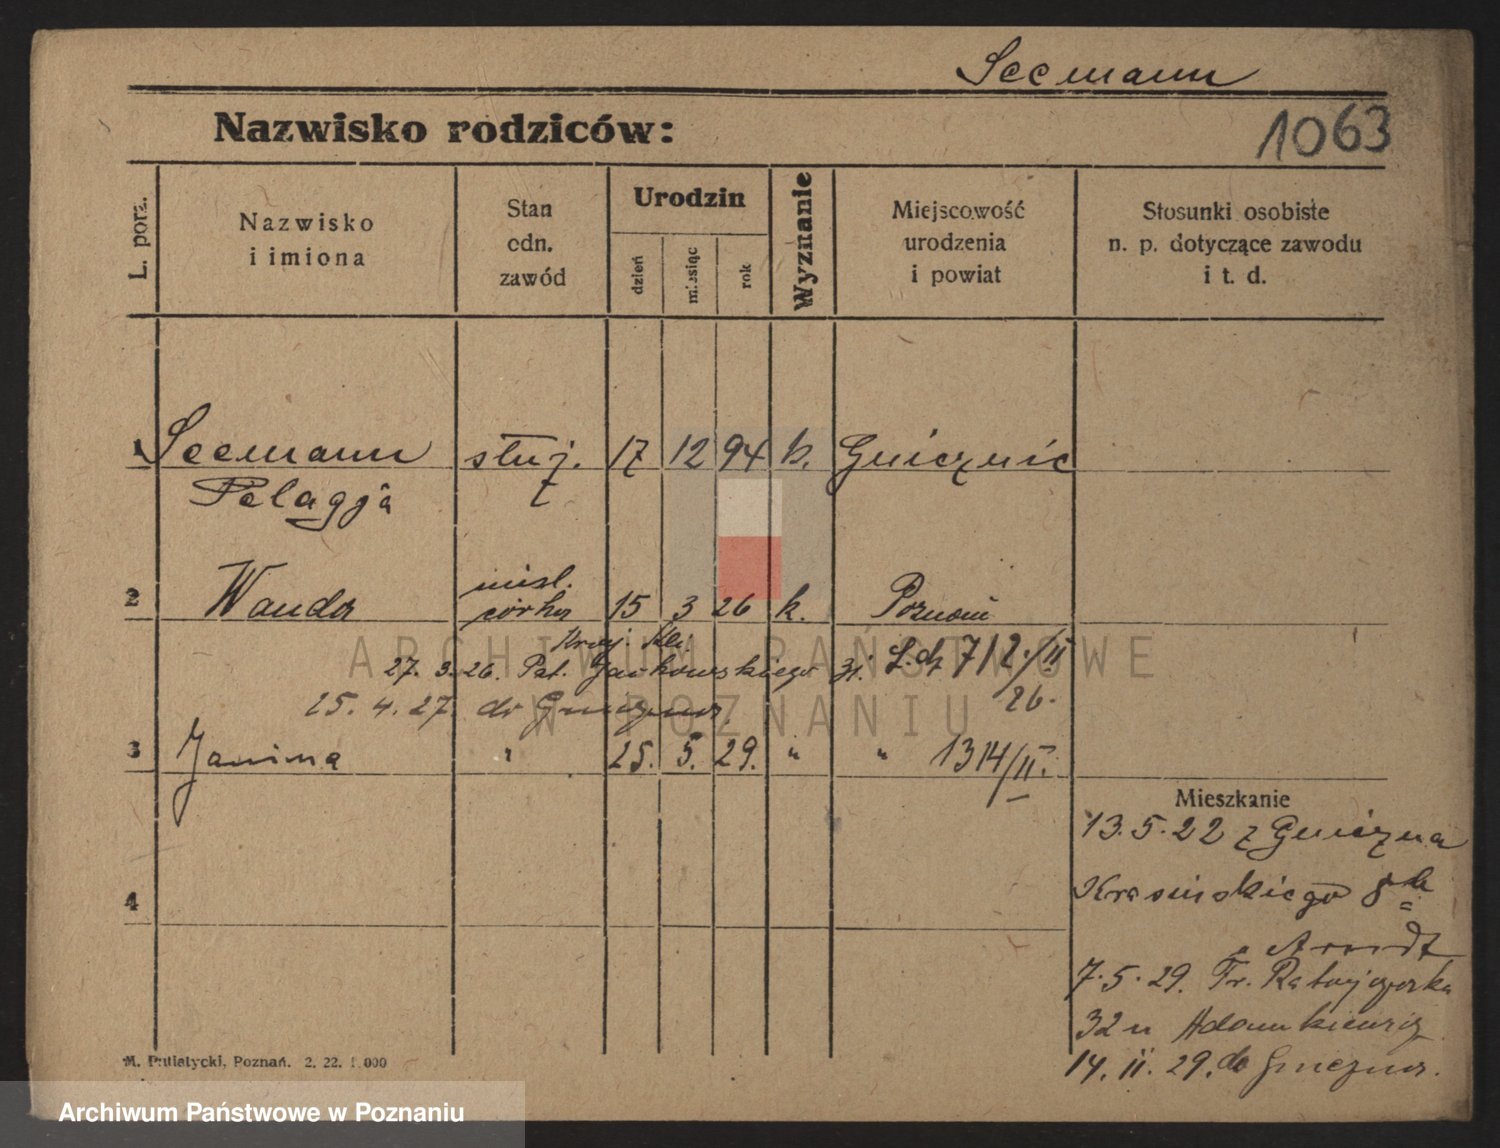 Seemann
Nazwisko rodziców:
1063
L. porz.
Nazwisko
i imiona
Stan
odn.
zawód
Urodzin
dzień
miesiąc
rok
Wyznanie
Miejscowość
urodzenia
i powiat
Stosunki osobiste
n. p. dotyczące zawodu
i t. d.
1 Seemann służ. 17 12 94 k. Gnieźnie
Pelagja
2 Wanda niesl. córka 15 3 26 k. Poznań
27. 3. 26. Pat. Jackowskiego 31. L.dz 712/II
26.
25. 4. 27. do Gniezna.
3 Janina " 25. 5. 29. " " 1314/II.
Mieszkanie
13.5.22 z Gniezna
Krasińskiego 8
Arndt
7.5.29. Fr. Ratajczaka
32 u Adamkiewicz
14. 11. 29. do Gniezna.
4
M. Putiatycki, Poznań. 2. 22. 1 000
ARCHIWUM PAŃSTWOWE
W POZNANIU
Archiwum Państwowe w Poznaniu